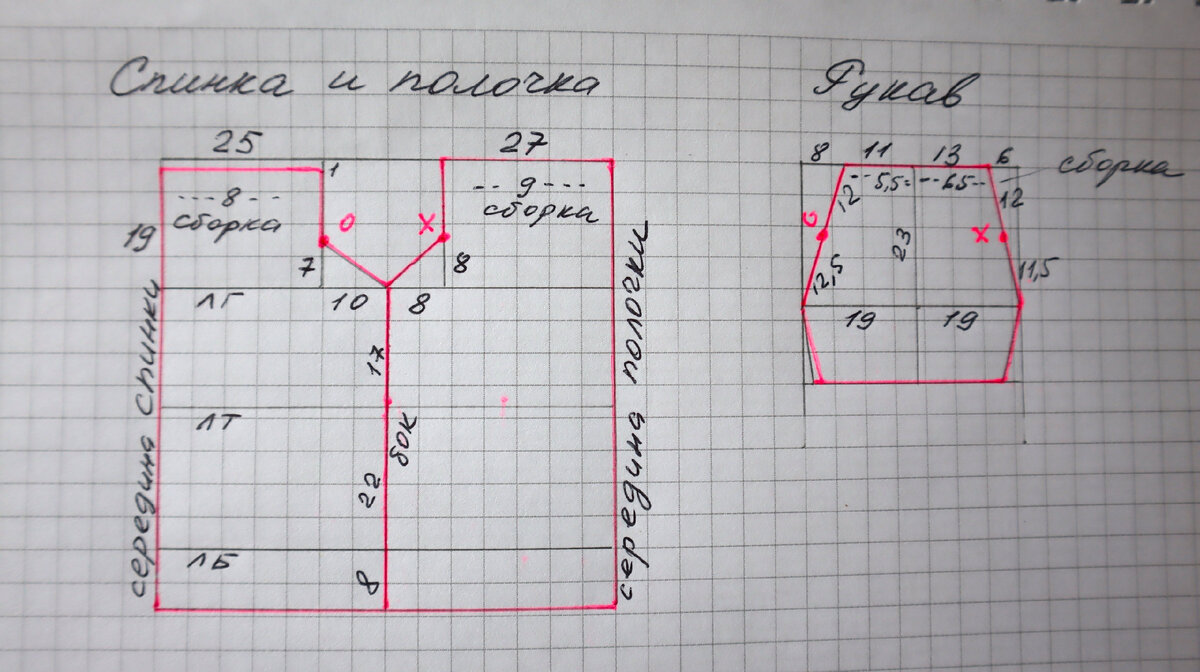 Спинка и полочка
25
27
1
--- 8 ---
сборка
-- 9 ---
сборка
О
Х
19
7
8
ЛГ
10
8
17
ЛТ
бок
22
ЛБ
8
середина спинки
середина полочки
Рукав
8 11 13 6
сборка
-- 5,5 -
-- 6,5 --
12
12
О
Х
23
12,5
11,5
19
19